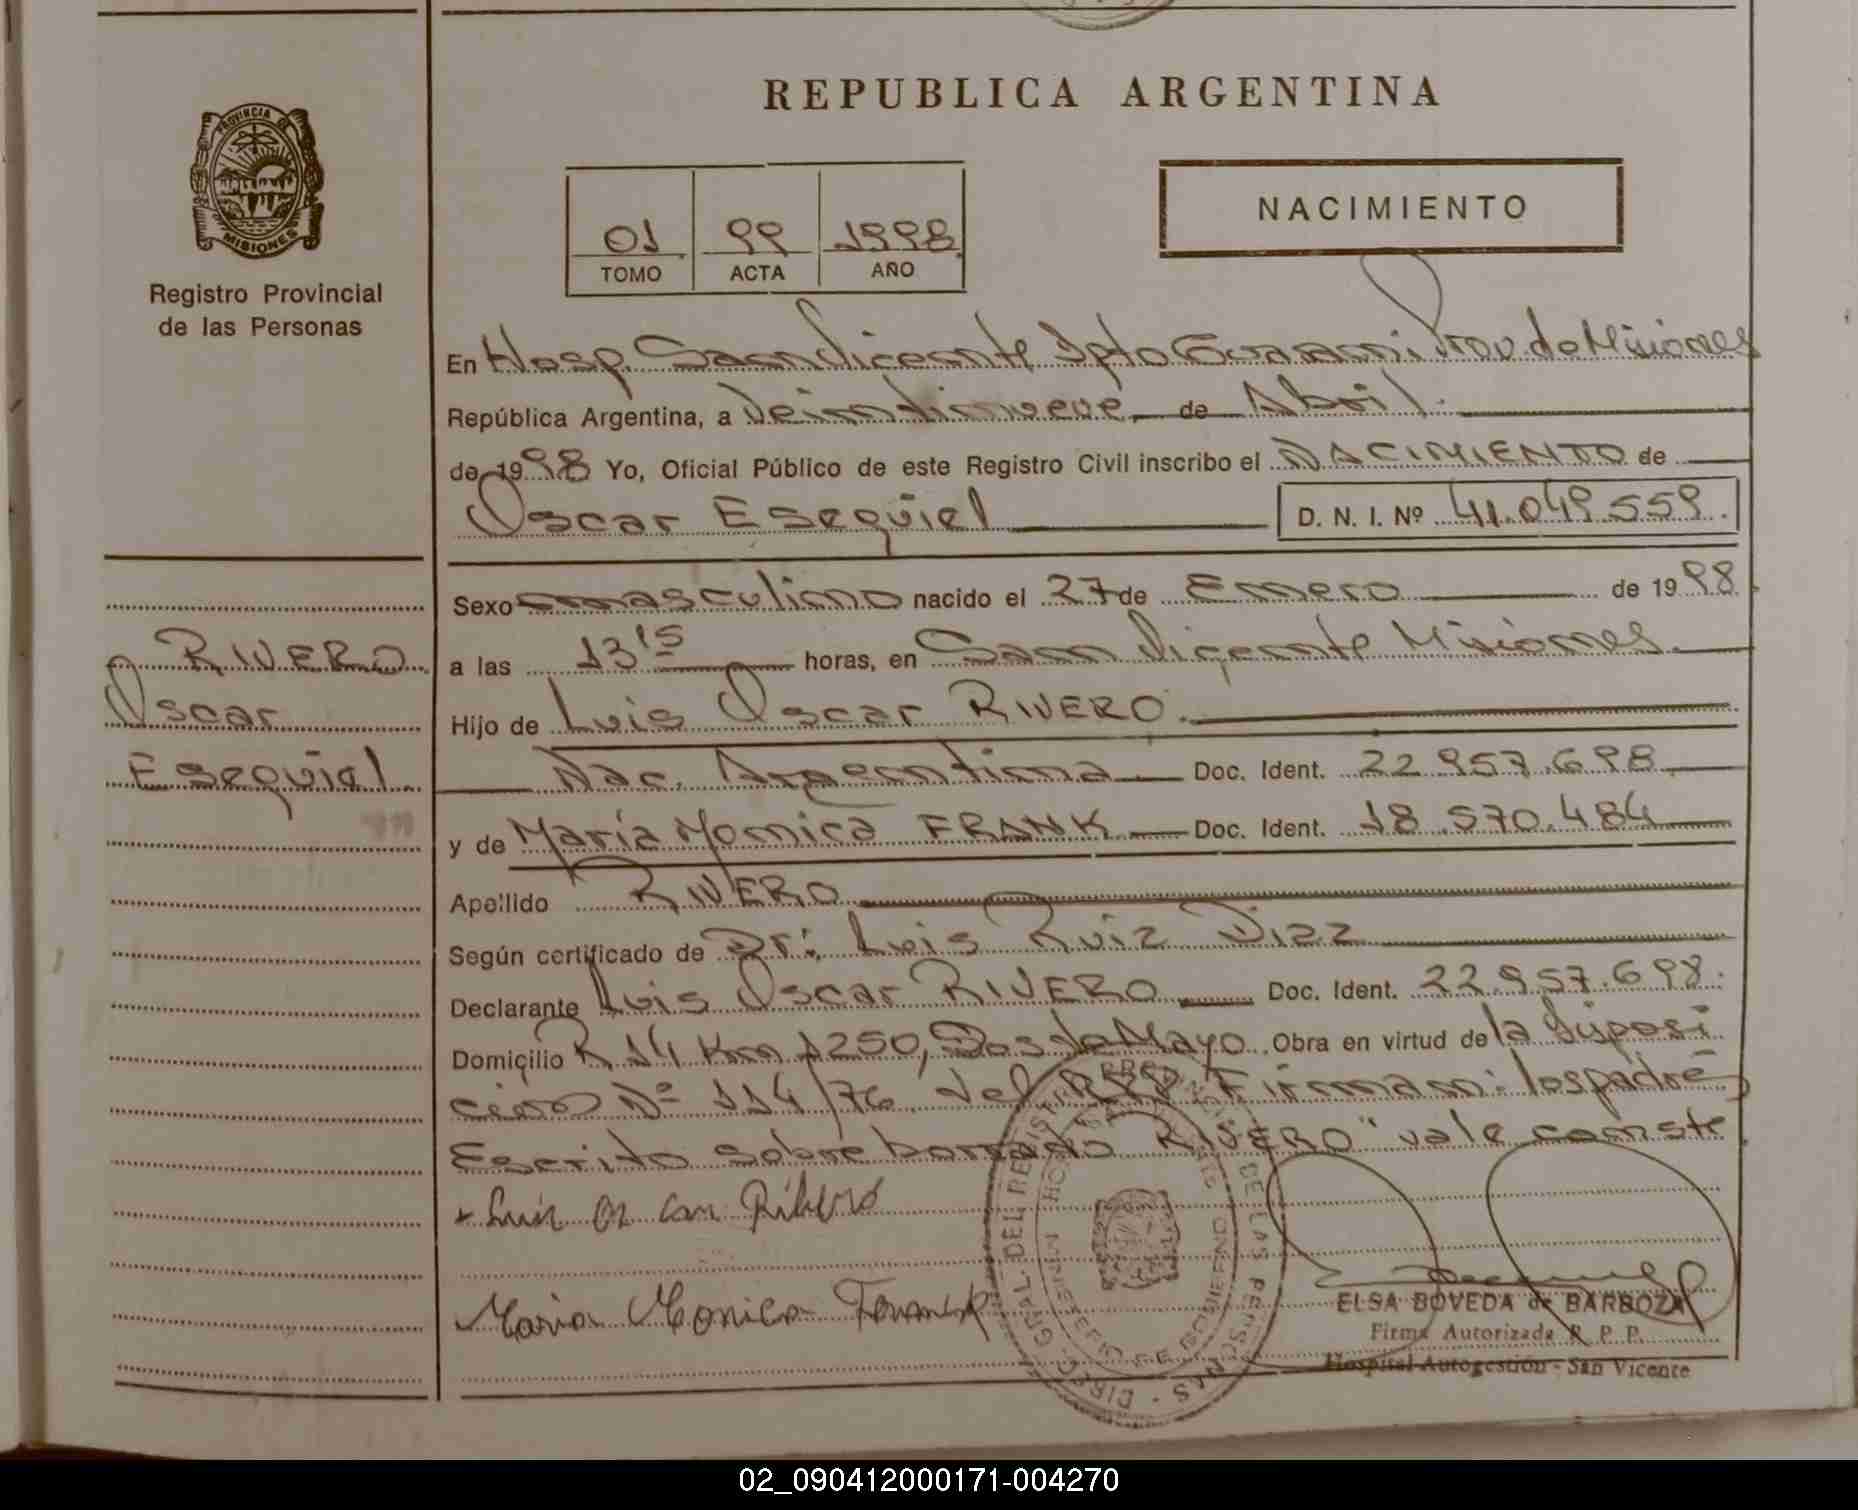 REPUBLICA ARGENTINA
PROVINCIA DE
MISIONES
Registro Provincial
de las Personas
01 99 1998
TOMO ACTA AÑO
NACIMIENTO
En Hosp. San Vicente Dpto Guaraní Prov. de Misiones
República Argentina, a Veintinueve de Abril
de 1998 Yo, Oficial Público de este Registro Civil inscribo el NACIMIENTO de
Oscar Esequiel D. N. I. Nº 41.049.559.
Sexo masculino nacido el 27 de Enero de 1998.
a las 13 15 horas, en San Vicente Misiones.
Hijo de Luis Oscar RIVERO.
Nac. Argentina Doc. Ident. 22.957.698
y de María Monica FRANK Doc. Ident. 18.570.484
Apellido RIVERO
Según certificado de Dr: Luis Ruiz Diaz
Declarante Luis Oscar RIVERO Doc. Ident. 22.957.698.
Domicilio R 14 Km 1250, Dos de Mayo. Obra en virtud de la Disposi
cion Nº 114/76 del RPP Firman: los padres
Escrito sobre borrado "RIVERO" vale conste.
RIVERO
Oscar
Esequiel.
Luis Os car Ribero
Maria Monica
DIREC. GRAL. DEL REGISTRO PROVINCIAL DE LAS PERSONAS
MINISTERIO DE GOBIERNO
ELSA BOVEDA de BARBOZA
Firma Autorizada R. P. P.
Hospital Autogestión - San Vicente
02_090412000171-004270